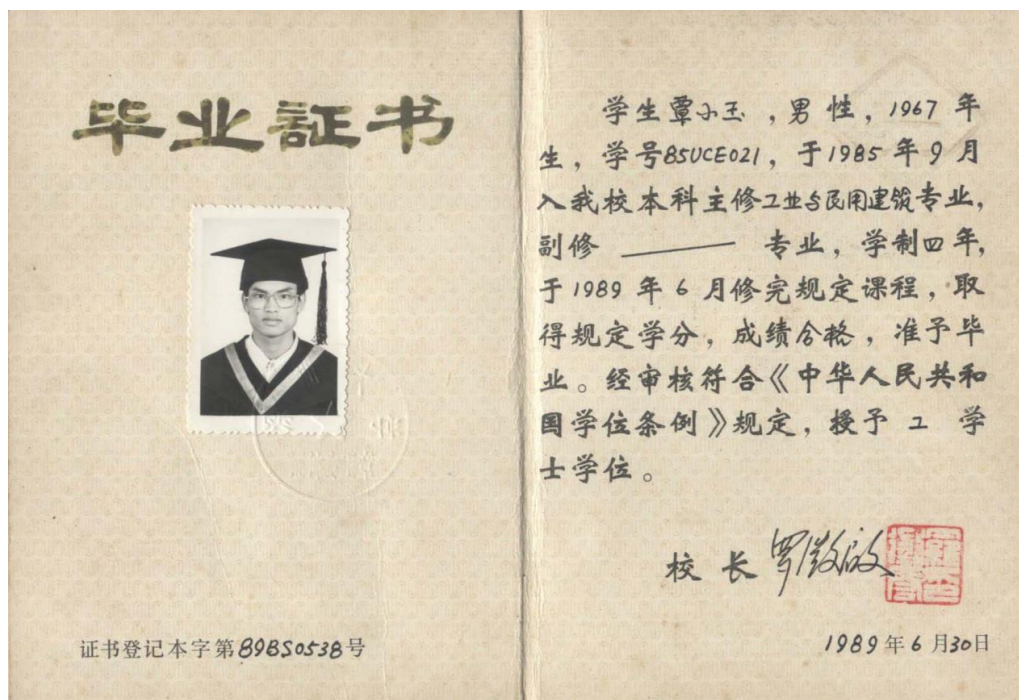 毕业証书
证书登记本字第89BS0538号
学生覃小玉,男性,1967年
生,学号85UCE021,于1985年9月
入我校本科主修工业与民用建筑专业,
副修 ——— 专业,学制四年,
于1989年6月修完规定课程,取
得规定学分,成绩合格,准予毕
业。经审核符合《中华人民共和
国学位条例》规定,授予 工 学
士学位。
校长 罗徵启
1989年6月30日